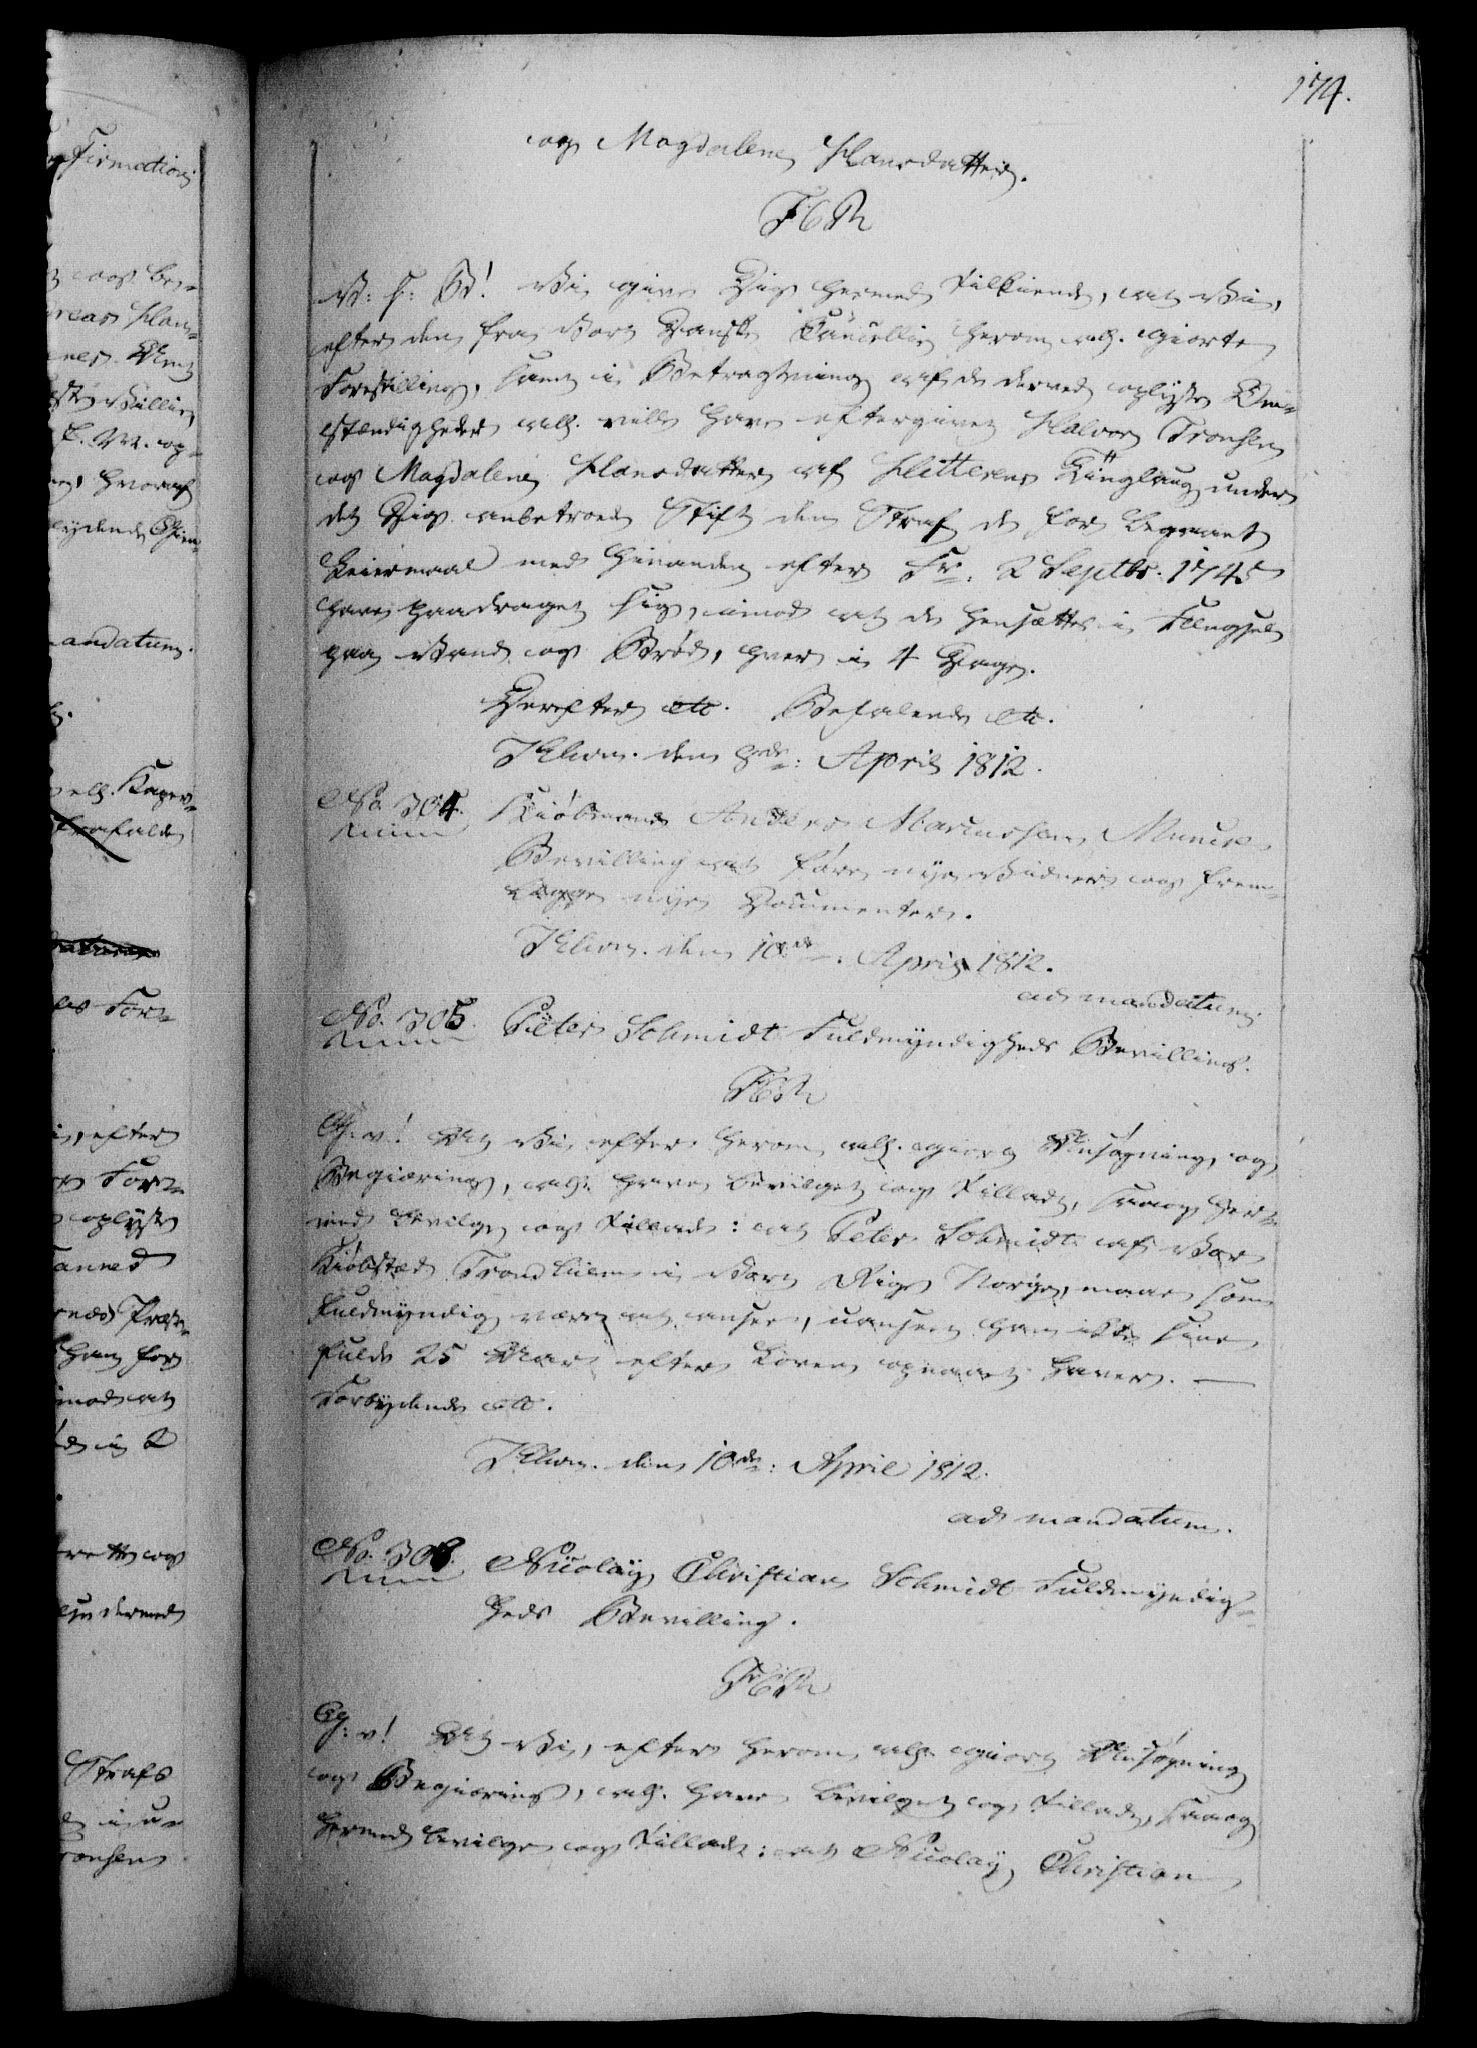 174.
og Magdalene Hansdatter.
F6R
V: S: G! Vi give Dig hermed tilkiende, at Vi,
efter den fra Vort Danske Cancellie herom all. giorte
Forestilling, samt i Betragtning af de derved oplyste Om-
stændigheder all. ville have eftergivet Halvor Tronsen
og Magdalene Hansdatter af Hitterens Tinglaug under
det Dig anbetroede Stift den Straf de for begaaet
Leiermaal med hinanden efter Fr: 2 Septbr. 1745
have paadraget sig, imod at de hensættes i Fængsel
paa Vand og Brød, hver i 4 Dage.
Derefter etc. Befalende etc.
Khvn. den 8de: April 1812.
No. 304. Kiøbmand Anders Marcussen Munck
Bevilling at føre nye Vidner og frem-
lægge nye Documenter.
Khvn. den 10de: April 1812.
ad mandatum
No. 305. Peter Schmidt Fuldmyndigheds Bevilling.
F6R
G: v! At Vi efter herom all. giort Ansøgning og
Begiæring, all. have bevilget og tilladt, saa og her-
med bevilge og tillade: at Peter Schmidt af Vor
Kiøbstæd Trondhiem i Vort Rige Norge, maae som
fuldmyndig være at ansee, uanseet han ikke sine
fulde 25 Aar efter Loven opnaaet haver. —
Forbydende etc.
Khvn. den 10de: April 1812.
ad mandatum.
No. 306. Nicolay Christian Schmidt Fuldmyndig-
heds Bevilling.
F6R
G: v! At Vi, efter herom all. giort Ansøgning
og Begiæring, all. have bevilget og tilladt, saa og
hermed bevilge og tillade: at Nicolay Christian